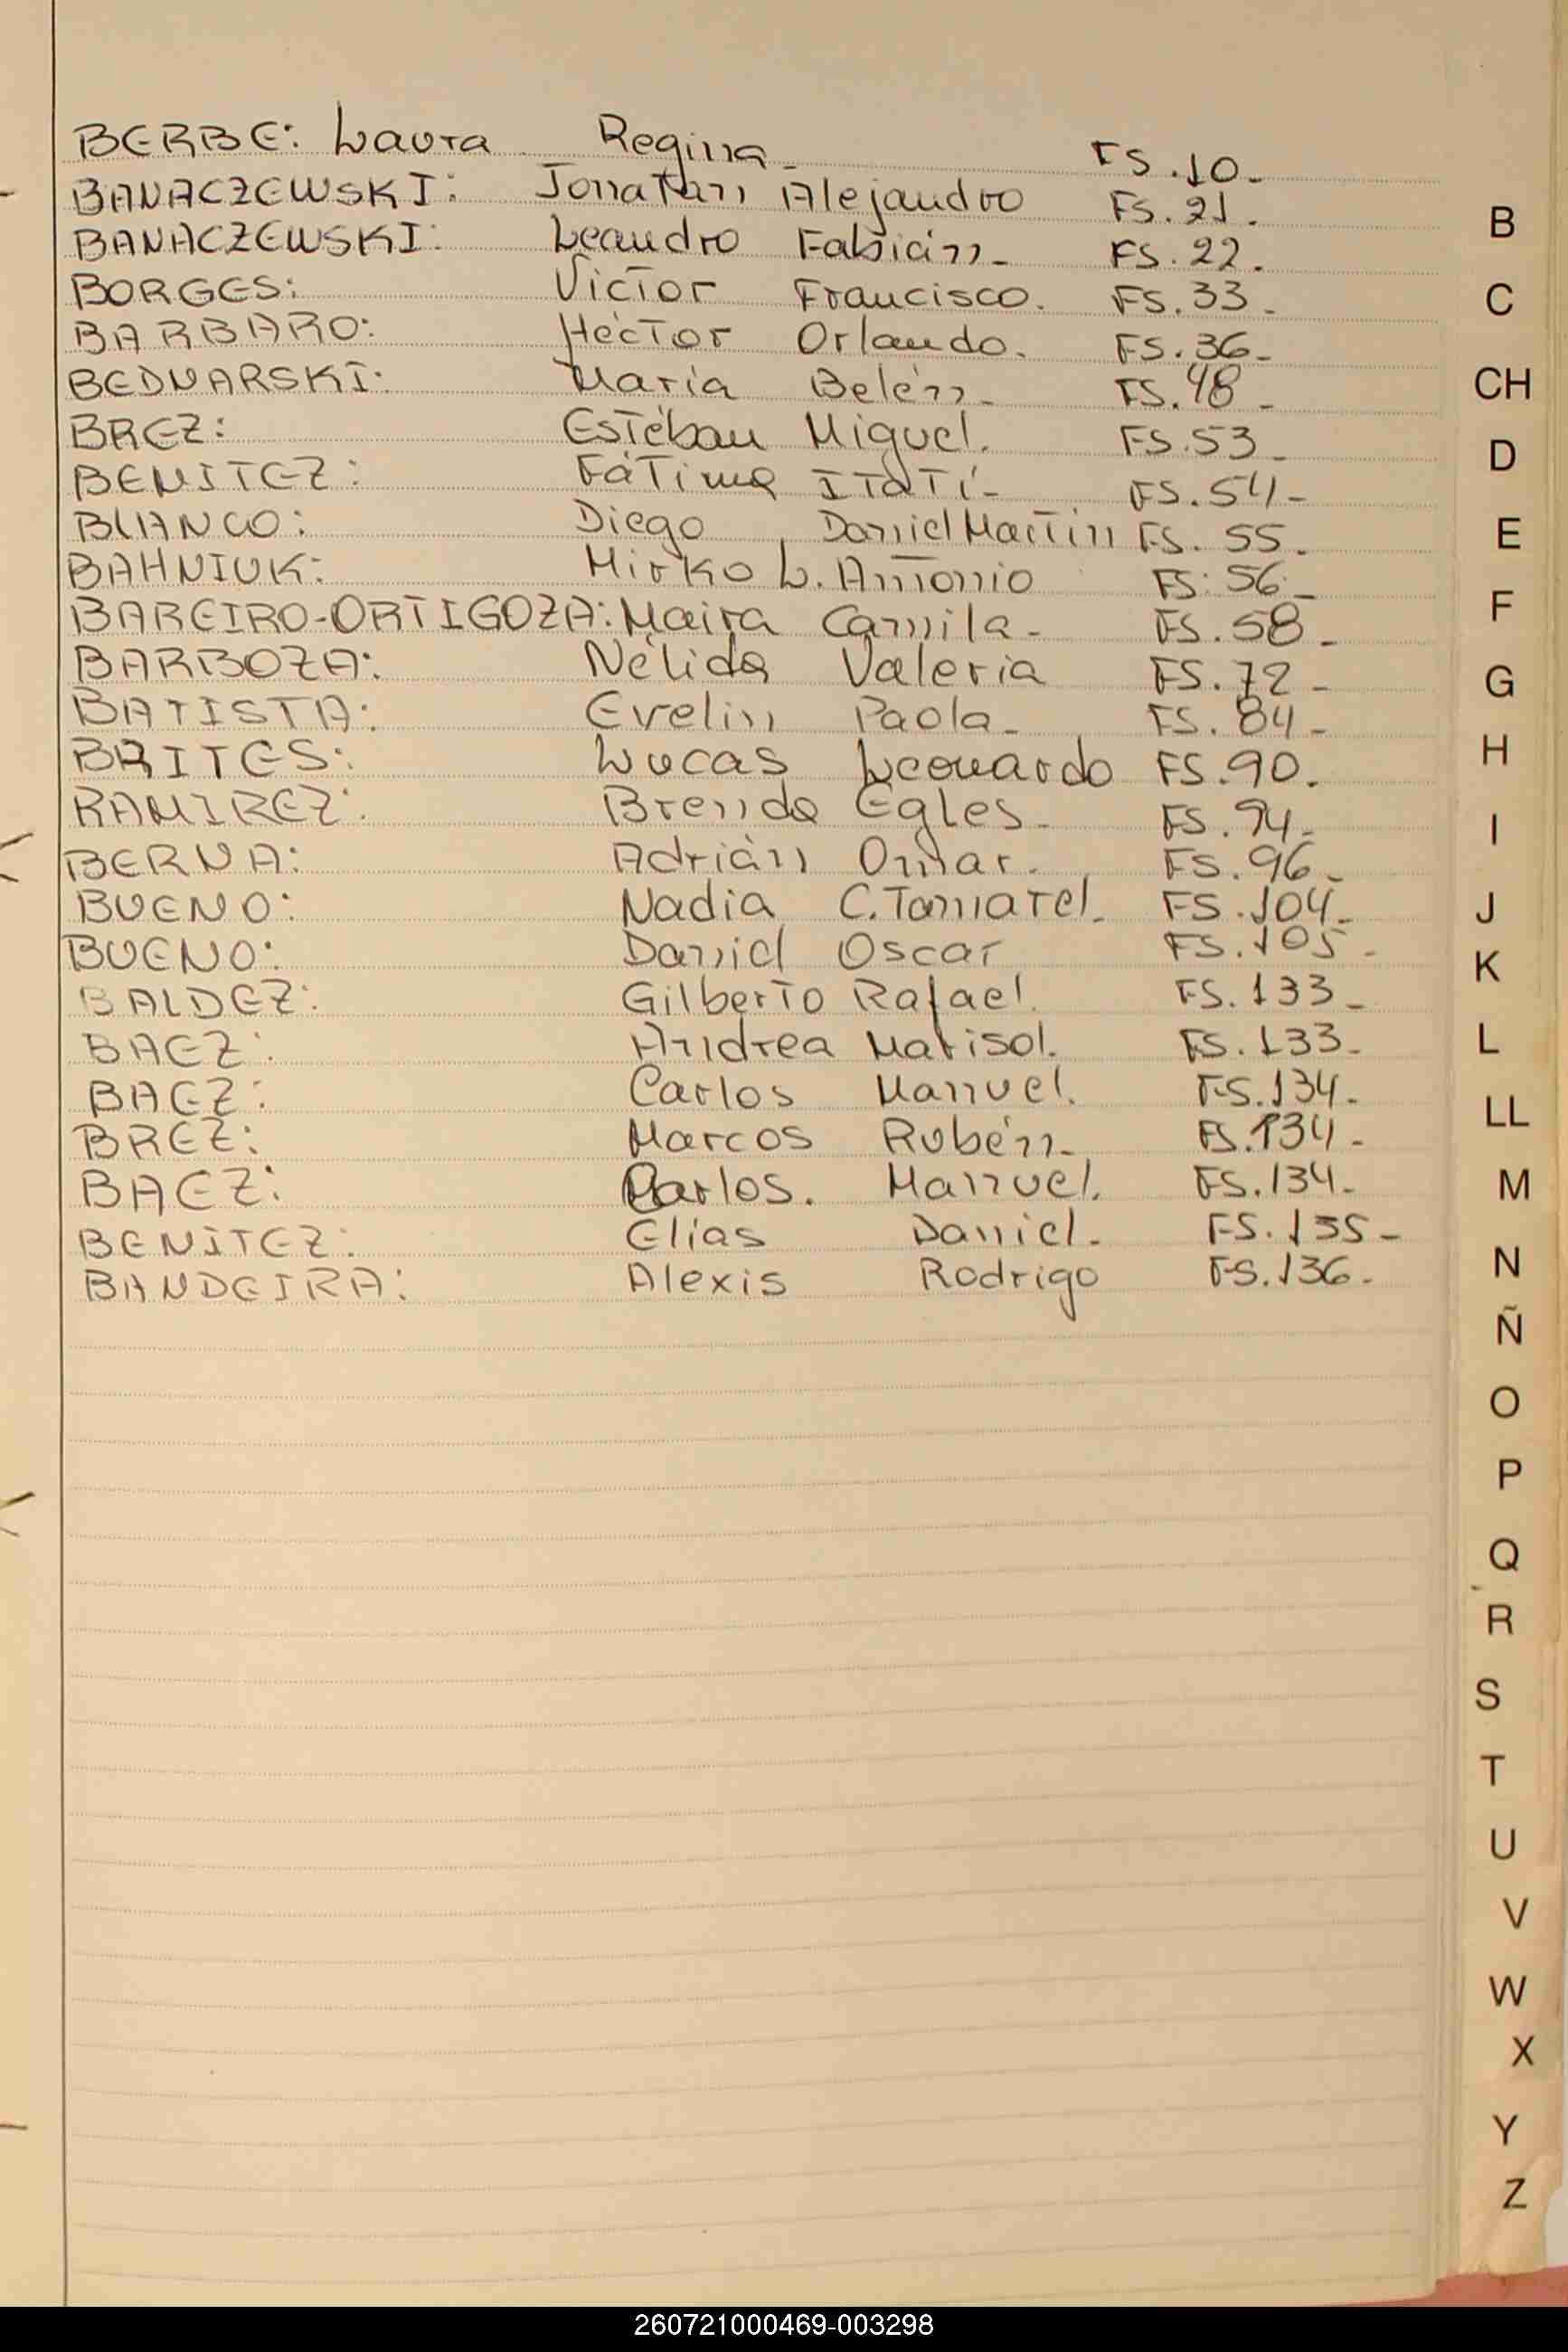 BERBE: Laura Regina FS.10.
BANACZEWSKI: Jonatan Alejandro FS.21.
BANACZEWSKI: Leandro Fabián FS.22.
BORGES: Victor Francisco. FS.33.
BARBARO: Héctor Orlando. FS.36-
BEDNARSKI: María Belén FS.48-
BREZ: Estéban Miguel. FS.53-
BENITEZ: Fátima ITatí- FS.54-
BLANCO: Diego Daniel Martin FS. 55.
BAHNIUK: Mirko L. Antonio FS. 56-
BAREIRO-ORTIGOZA: Maira Camila- FS.58-
BARBOZA: Nélida Valeria FS.72-
BATISTA: Evelin Paola- FS. 84-
BRITES: Lucas Leonardo FS.90.
RAMIREZ: Brenda Egles- FS.94-
BERNA: Adrián Omar. FS.96-
BUENO: Nadia C. FS.104-
BUENO: Daniel Oscar FS.105-
BALDEZ: Gilberto Rafael. FS.133-
BAEZ: Andrea Marisol. FS.133-
BAEZ: Carlos Manuel. FS.134-
BREZ: Marcos Rubén- FS.134-
BAEZ: Carlos. Manuel. FS.134-
BENITEZ: Elías Daniel- FS.135-
BANDEIRA: Alexis Rodrigo FS.136-
B
C
CH
D
E
F
G
H
I
J
K
L
LL
M
N
Ñ
O
P
Q
R
S
T
U
V
W
X
Y
Z
260721000469-003298